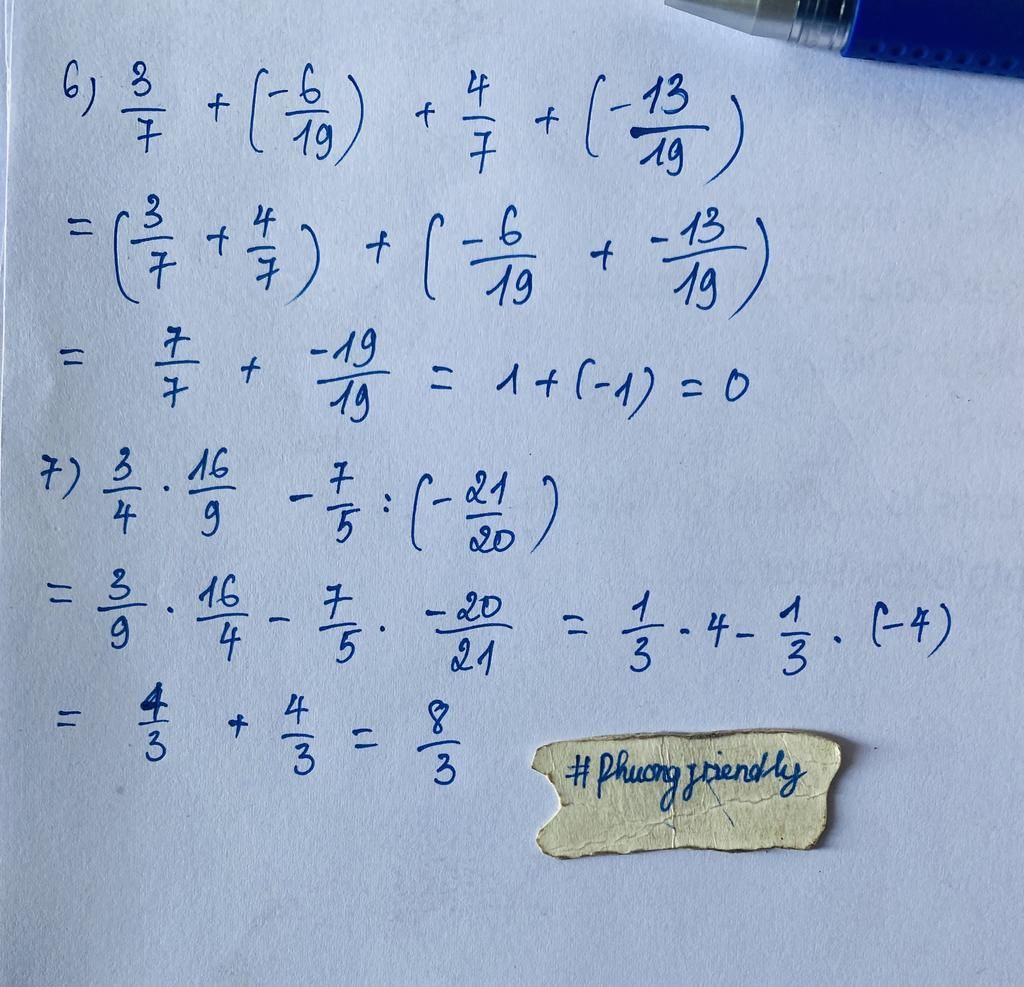 6) 3/7 + (-6/19) + 4/7 + (-13/19)
= (3/7 + 4/7) + (-6/19 + -13/19)
= 7/7 + -19/19 = 1 + (-1) = 0
7) 3/4 . 16/9 - 7/5 : (-21/20)
= 3/9 . 16/4 - 7/5 . -20/21 = 1/3 . 4 - 1/3 . (-4)
= 4/3 + 4/3 = 8/3
#Phuongfriendly